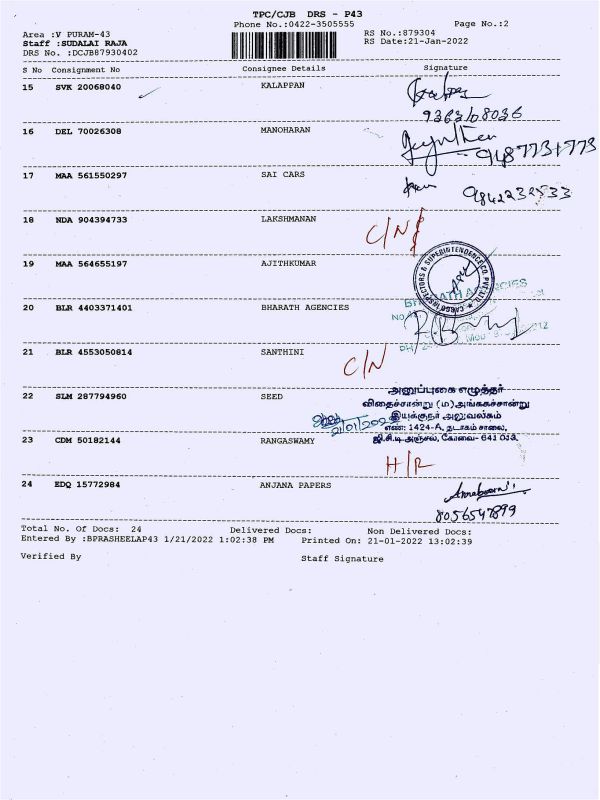 TPC/CJB DRS - P43
Phone No.:0422-3505555 Page No.:2
Area :V PURAM-43 RS No.:879304
Staff :SUDALAI RAJA RS Date:21-Jan-2022
DRS No. :DCJB87930402
S No Consignment No Consignee Details Signature
15 SVK 20068040 KALAPPAN
9363108036
16 DEL 70026308 MANOHARAN
9487731773
17 MAA 561550297 SAI CARS
9842232533
18 NDA 904394733 LAKSHMANAN
C/N
19 MAA 564655197 AJITHKUMAR
INSPECTORS & SUPERINTENDENCE CO. PVT. LTD.
BHARATH AGENCIES
20 BLR 4403371401 BHARATH AGENCIES
21 BLR 4553050814 SANTHINI
C/N
22 SLM 287794960 SEED
அனுப்புகை எழுத்தர்
விதைச்சான்று (ம) அங்ககச்சான்று
இயக்குநர் அலுவலகம்
21/01/2022
எண்: 1424-A, தடாகம் சாலை,
ஜி.சி.டி அஞ்சல், கோவை- 641 013.
23 CDM 50182144 RANGASWAMY
H/R
24 EDQ 15772984 ANJANA PAPERS
8056547899
Total No. Of Docs: 24 Delivered Docs: Non Delivered Docs:
Entered By :BPRASHEELAP43 1/21/2022 1:02:38 PM Printed On: 21-01-2022 13:02:39
Verified By Staff Signature